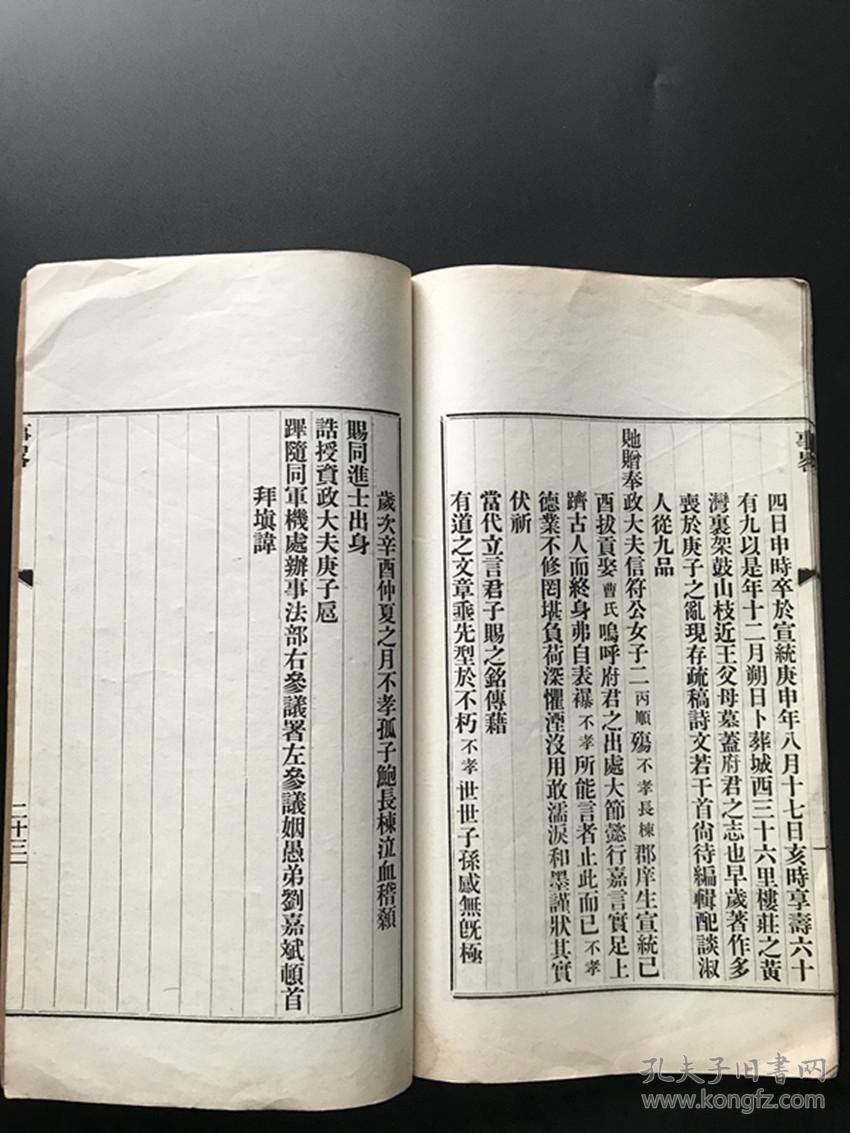 事畧
四日申時卒於宣統庚申年八月十七日亥時享壽六十
有九以是年十二月朔日卜葬城西三十六里樓莊之黃
灣裏架鼓山枝近王父母墓蓋府君之志也早歲著作多
喪於庚子之亂現存疏稿詩文若干首尙待編輯配談淑
人從九品
貤贈奉政大夫信符公女子二丙順殤不孝長棟郡庠生宣統己
酉拔貢娶曹氏嗚呼府君之出處大節懿行嘉言實足上
躋古人而終身弗自表襮不孝所能言者止此而已不孝
德業不修罔堪負荷深懼湮沒用敢濡淚和墨謹狀其實
伏祈
當代立言君子賜之銘傳藉
有道之文章垂先型於不朽不孝世世子孫感無旣極
歲次辛酉仲夏之月不孝孤子鮑長棟泣血稽顙
賜同進士出身
誥授資政大夫庚子扈
蹕隨同軍機處辦事法部右參議署左參議姻愚弟劉嘉斌頓首
拜塡諱
事畧
二十三
孔夫子旧书网
www.kongfz.com